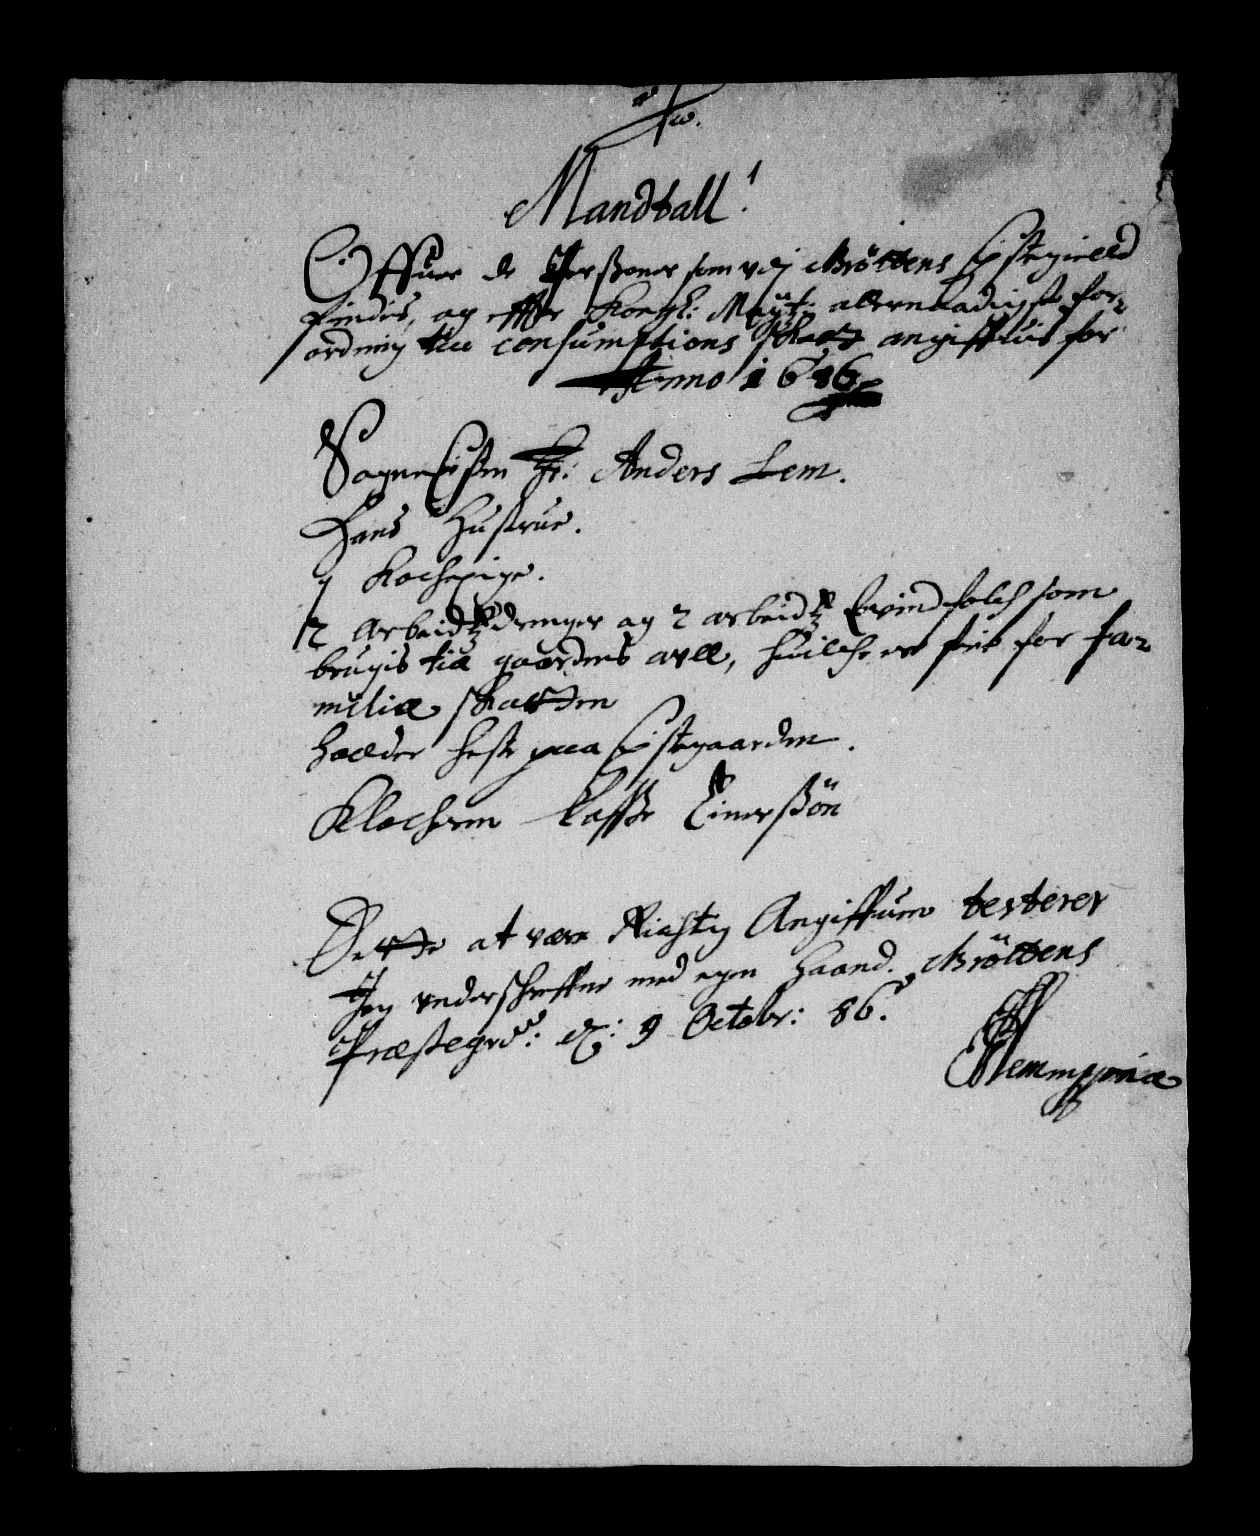 Mandtall!
Offuer de Perßoner som vdj Bröttens Prestegield
findes, og effter Kongl: Maytz: allernaadigste for-
ordning till consumptions schatt angiffuis for
Anno 1686
SognePresten Hr: Anders Lem.
Hans Hustrue.
1 Kochepige.
2 Arbeidtzdrenger og 2 arbeidtz Qvindfolch som
brugis till gaardens avll, huilche er frie for fa-
miliæ schatten
holder heste paa Prestegaarden.
Klocheren Taffße Einerßön
Dette at være Richtig Angiffuun testerer
Jeg vnderschreffne med egen haand. Bröttens
Præstegrd: d: 9 Octobr: 86.